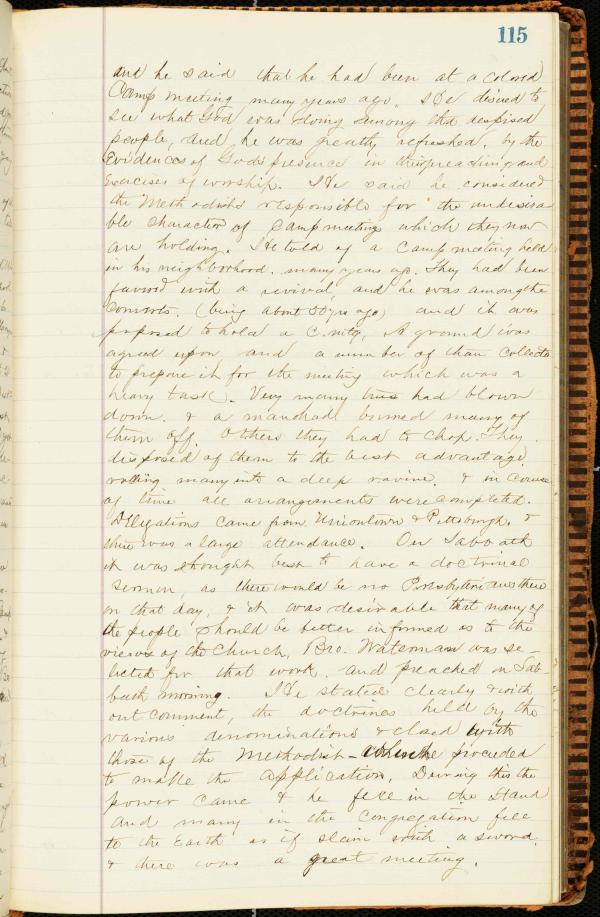 115
and he said that he had been at a colored
Camp meeting many years ago. He desired to
see what God was doing among this despised
people, and he was greatly refreshed, by the
evidences of God's presence in their preaching and
exercises of worship. He said he considered
the Methodists responsible for the undesira-
ble character of Camp meetings which they now
are holding. He told of a camp meeting held
in his neighborhood many years ago. They had been
favord with a revival, and he was among the
Converts. (being about 50 yrs ago) and it was
proposed to hold a C. mtg. A ground was
agreed upon and a number of them collected
to prepare it for the meeting which was a
heavy task. Very many trees had blown
down. & a man had burned many of
them off. Others they had to chop. They
disposed of them to the best advantage
rolling many into a deep ravine. & in course
of time all arrangements were completed.
Delegations came from Uniontown & Pittsburgh. &
there was a large attendance. On Sabbath
it was thought best to have a doctrinal
sermon, as there would be no Presbyterians there
on that day, & it was desirable that many of
the people should be better informed as to the
views of the Church, Bro. Waterman was se-
lected for that work. and preached on Sab-
bath morning. He stated clearly & with
out comment, the doctrines held by the
various denominations & closed with
those of the Methodist - when he proceeded
to make the application. During this the
power came & he fell in the Stand
and many in the Congregation fell
to the Earth as if slain with a sword.
& there was a great meeting.